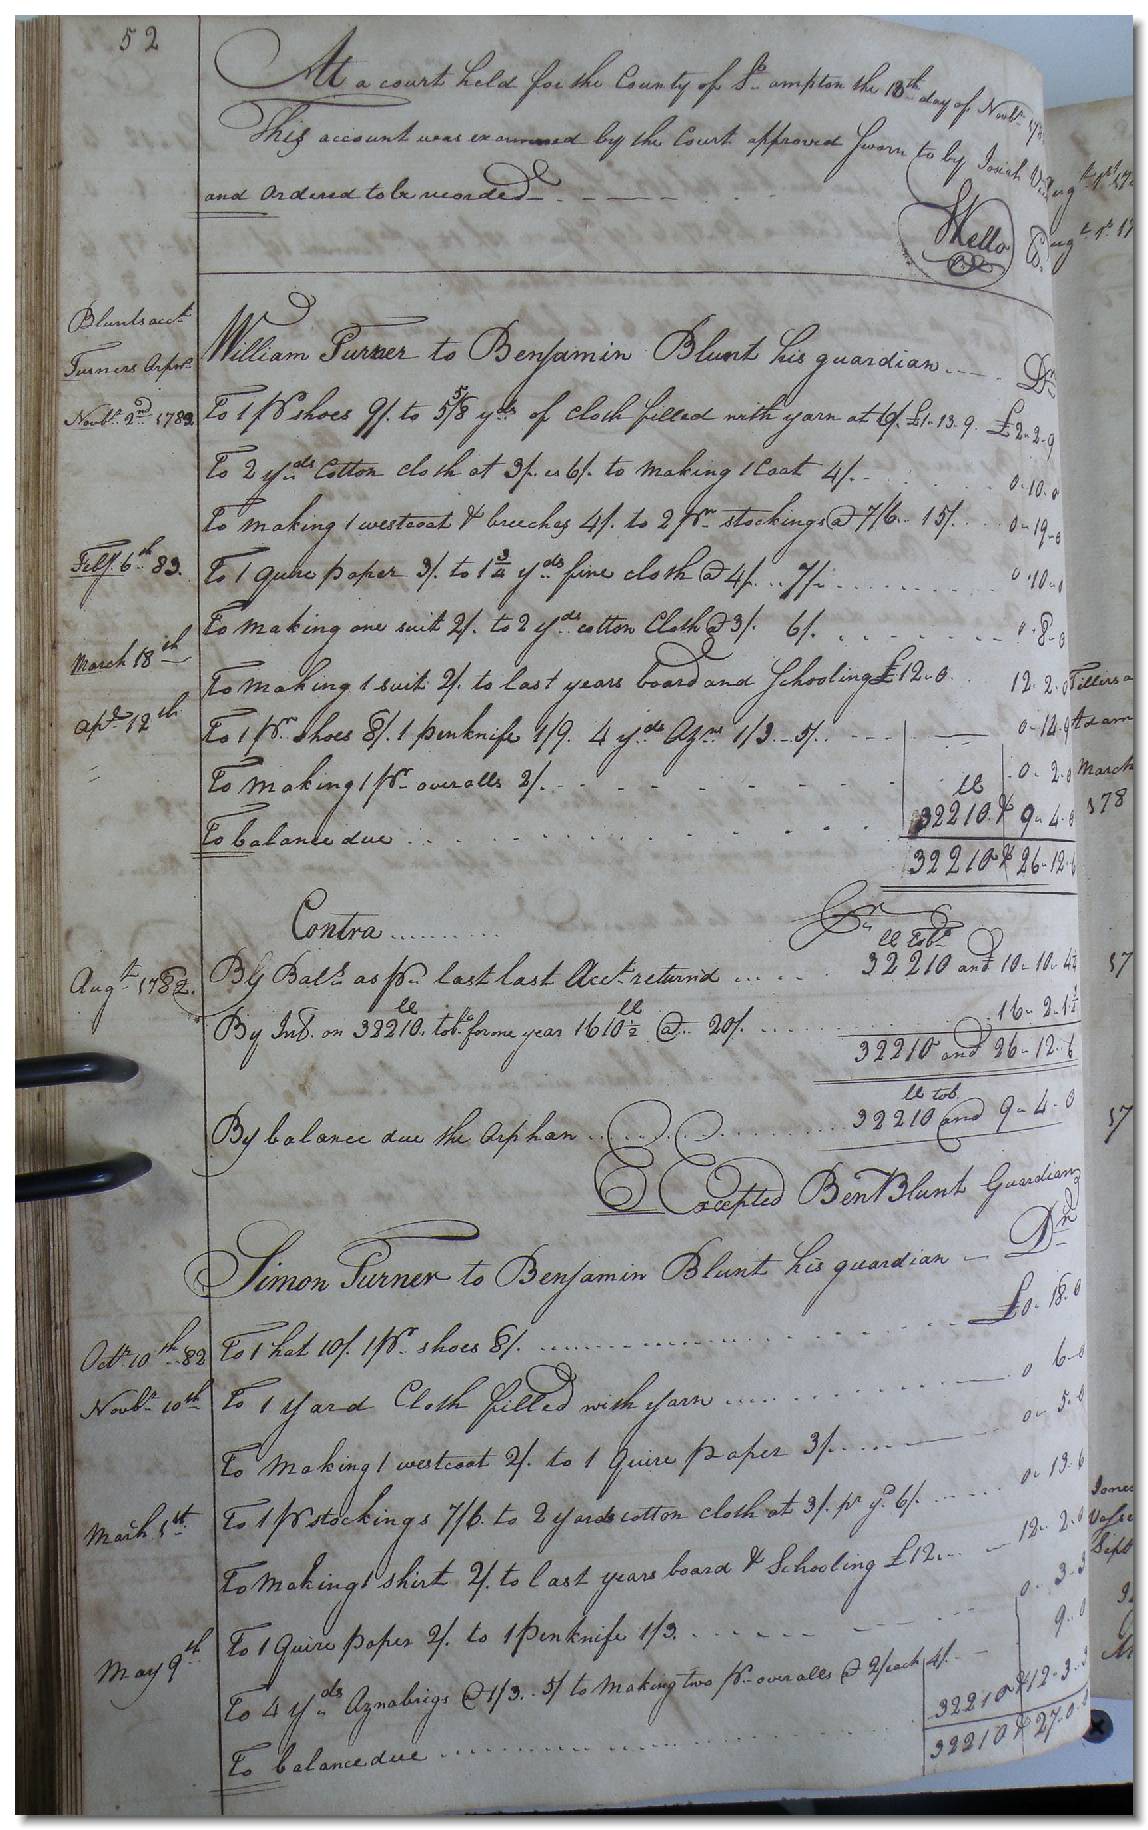 52
At a court held for the County of So. ampton the 13th day of Novbr. 178
This account was examined by the Court approved sworn to by Josiah
and ordered to be recorded
Blunts acct.
Turners Orpn.
William Turner to Benjamin Blunt his guardian .... Dr.
Novbr. 2nd 1782 To 1 pr shoes 9/. to 5 5/8 yds of cloth filled with yarn at 6/. £1.13.9. £2..2..9
To 2 yds Cotton cloth at 3/. is 6/. to making 1 Coat 4/. 0..10..0
To making 1 westcoat & breeches 4/. to 2 pr. stockings @ 7/6 15/. 0..19..0
Feby. 6th 83. To 1 quire paper 3/. to 1 3/4 yds. fine cloth @ 4/. .. 7/. 0..10..0
To making one suit 2/. to 2 yds. cotton Cloth @ 3/. 6/. 0..8..0
March 18th To making 1 suit 2/. to last years board and schooling £12..0 12..2..0
Apr. 12th To 1 pr. shoes 8/. 1 penknife 1/9. 4 yds Azns 1/3..5/. 0..14..9
To making 1 pr. overalls 2/. 0..2..0
To balance due lb 32210 & 9..4..0
32210 & 26..12..6
Contra Cr.
lb Tobo.
Augt. 1782. By Bale. as pr. last last Acct. returnd .... 32210 and 10..10..4 1/2
By Int. on 32210 lb tobo. for one year 1610 1/2 lb @ 20/. 16..2..1 1/2
32210 and 26..12..6
lb tob
By balance due the orphan 32210 and 9..4..0
E Excepted Ben Blunt Guardian
Simon Turner to Benjamin Blunt his guardian Dr.
Octr. 10th 82 To 1 hat 10/. 1 pr. shoes 8/. £0..18..0
Novbr. 10th To 1 yard Cloth filled with yarn 0 6..0
To making 1 westcoat 2/. to 1 Quire paper 3/. 0..5..0
March 5th To 1 pr stockings 7/6. to 2 yards cotton cloth at 3/. pr yd. 6/. 0..13..6
To making 1 shirt 2/. to last years board & Schooling £12. 12..2..0
To 1 Quire paper 2/. to 1 penknife 1/3. 0..3..3
May 9th To 4 yds Aznabrigs @ 1/3..5/ to making two pr. overalls @ 2/ each 4/. 9..0
To balance due 32210 & 12..3..3
32210 & 27..0..